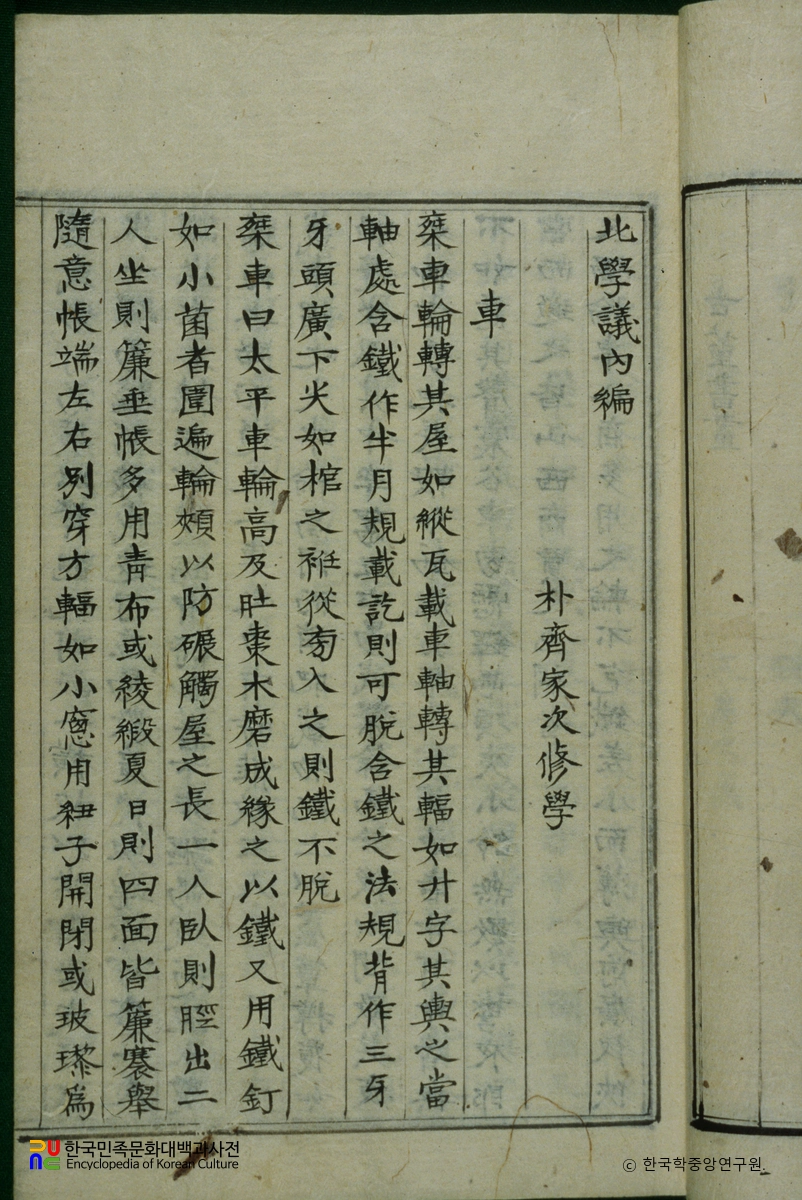 北學議內編
朴齊家次修學
車
桒車輪轉其屋如縱瓦載車軸轉其輻如廾字其輿之當
軸處含鐵作半月規載訖則可脫含鐵之法規背作三牙
牙頭廣下尖如棺之袵從旁入之則鐵不脫
桒車曰太平車輪高及肚棗木磨成緣之以鐵又用鐵釘
如小菌者圍遍輪頰以防碾觸屋之長一人臥則脛出二
人坐則簾垂帳多用靑布或綾緞夏日則四面皆簾褰擧
隨意帳端左右別穿方輻如小窓用紐子開閉或玻瓈爲
한국민족문화대백과사전
Encyclopedia of Korean Culture
ⓒ 한국학중앙연구원